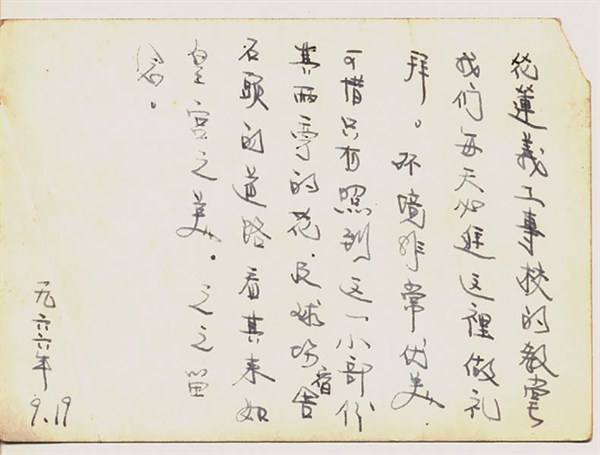 花蓮義工專校的教堂
我们每天必進这裡做礼
拜。环境非常优美
可惜只有照到这一小部份
其兩旁的花、及球场宿舍
石頭的道路看其来如
皇宫之美。之之留
念。
一九六六年
9.19